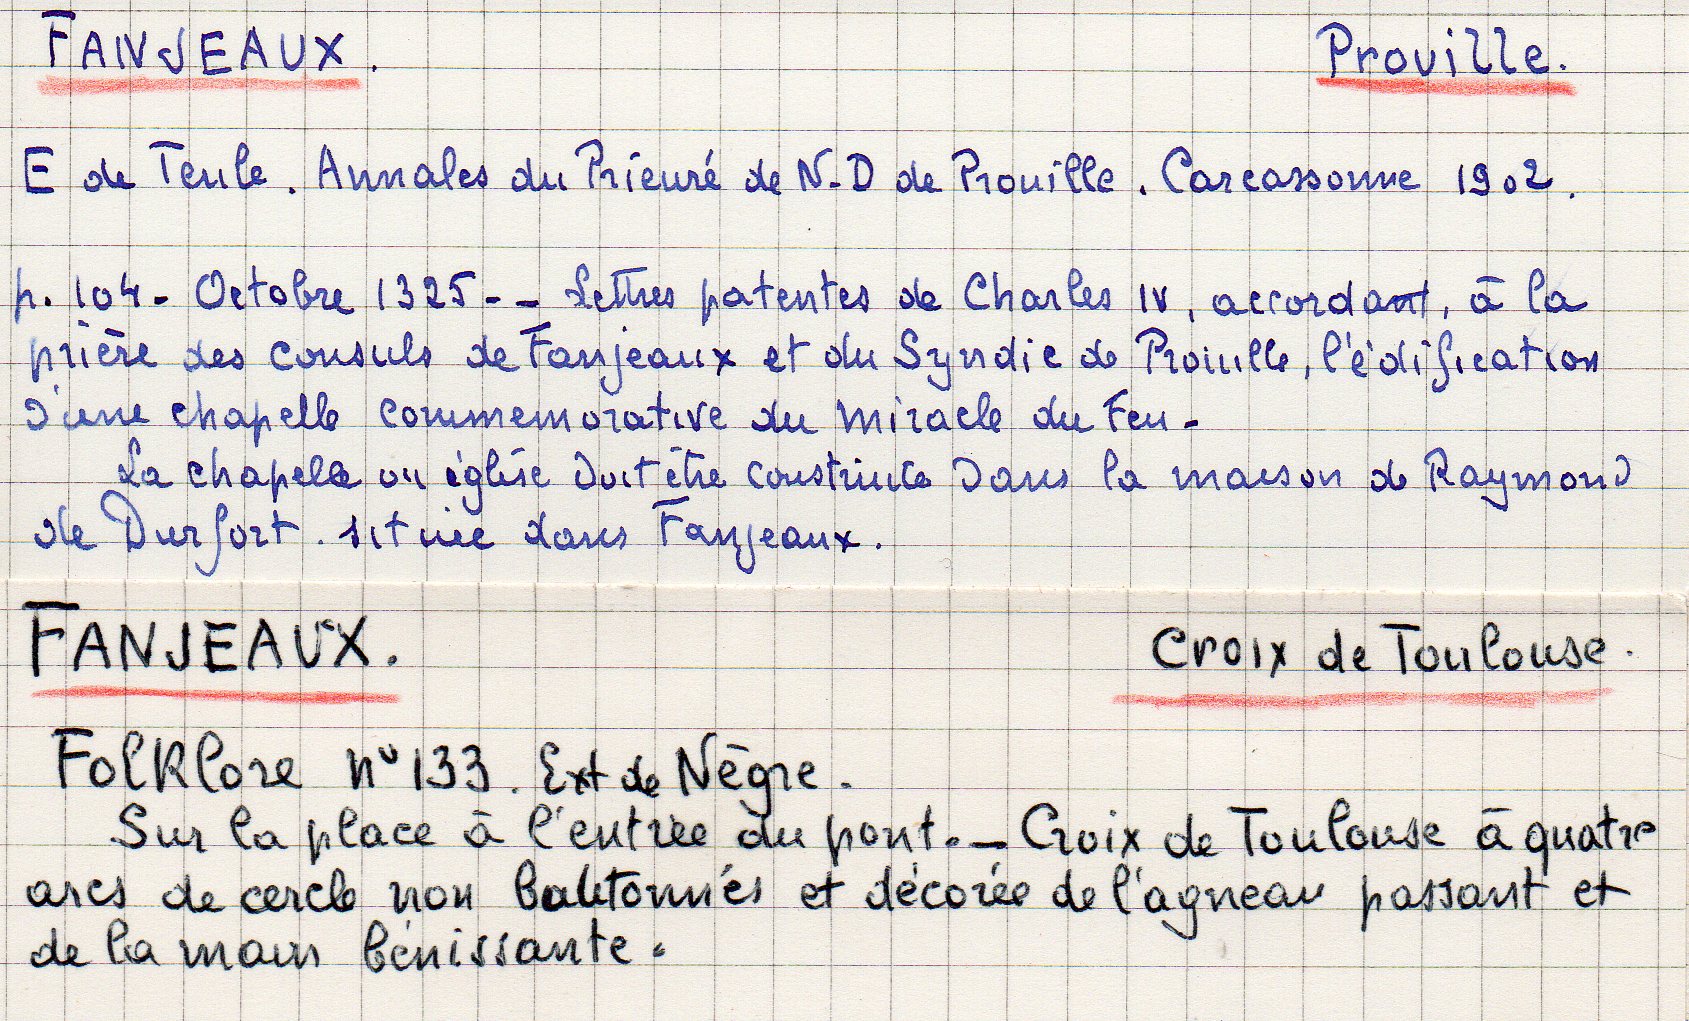 FANJEAUX. Prouille.
E de Teule. Annales du Prieuré de N-D de Prouille. Carcassonne 1902.
p. 104 - Octobre 1325 - - Lettres patentes de Charles IV, accordant, à la
prière des consuls de Fanjeaux et du Syndic de Prouille, l'édification
d'une chapelle commemorative du miracle du Feu -
La chapelle ou église doit être construite dans la maison de Raymond
de Durfort. située dans Fanjeaux.
FANJEAUX. Croix de Toulouse.
Folklore n° 133. Ext de Nègre.
Sur la place à l'entrée du pont. - Croix de Toulouse à quatre
arcs de cercle non boutonnés et décorée de l'agneau passant et
de la main bénissante.